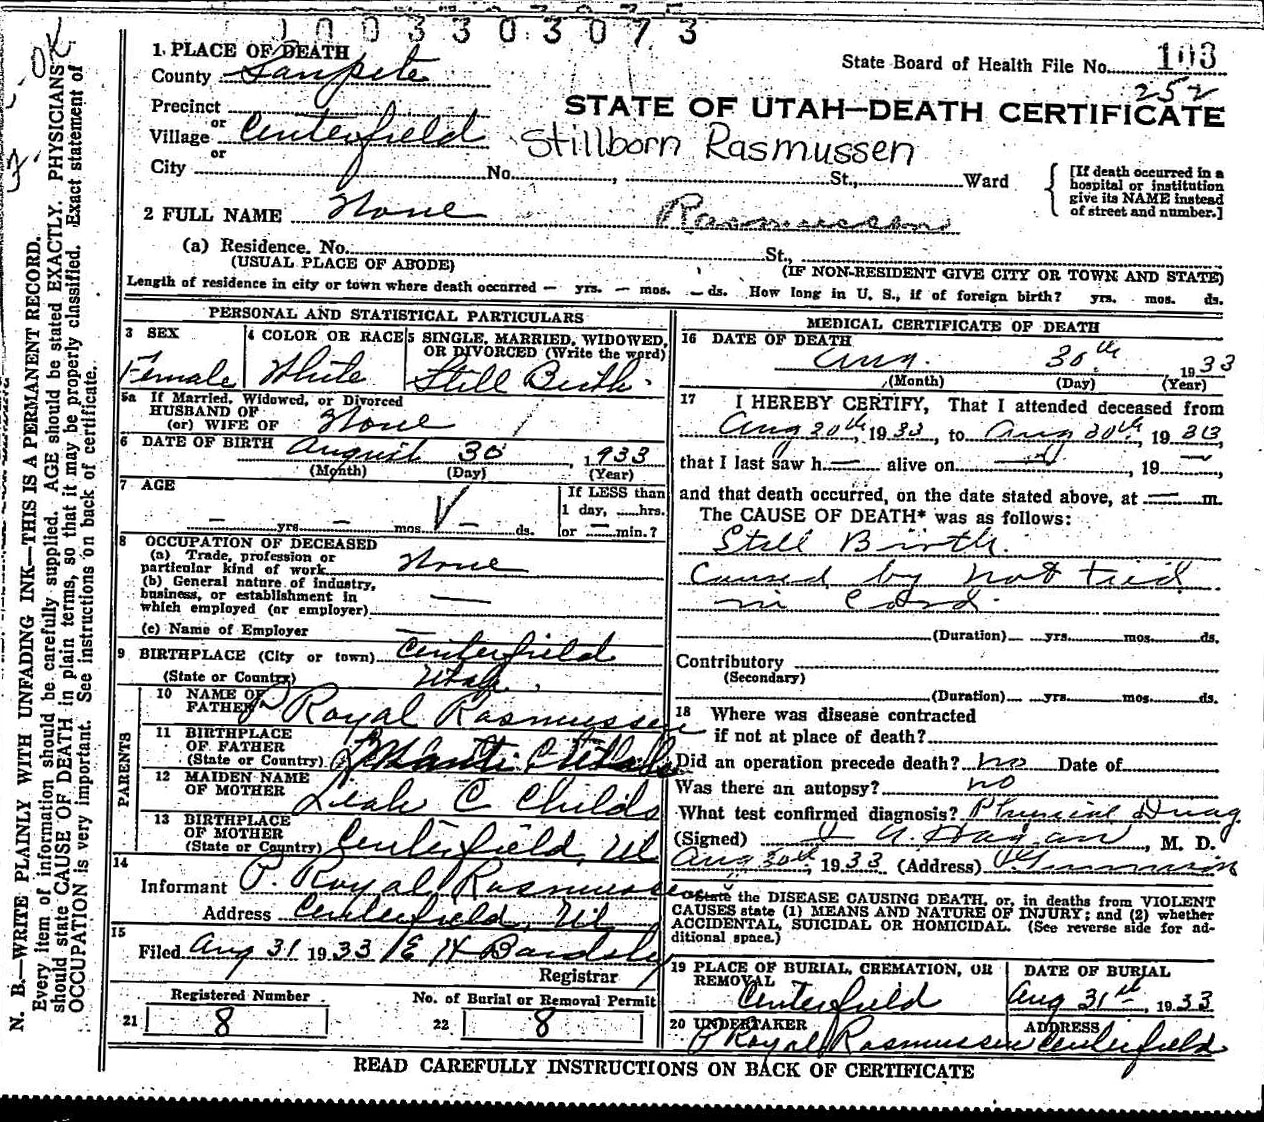 1003303073
1. PLACE OF DEATH
County Sanpete
State Board of Health File No. 103
252
Precinct
or
Village Centerfield
STATE OF UTAH—DEATH CERTIFICATE
Stillborn Rasmussen
or
City No. , St., Ward
[If death occurred in a hospital or institution give its NAME instead of street and number.]
2 FULL NAME None Rasmussen
(a) Residence. No. St.,
(USUAL PLACE OF ABODE) (IF NON-RESIDENT GIVE CITY OR TOWN AND STATE)
Length of residence in city or town where death occurred — yrs. — mos. — ds. How long in U. S., if of foreign birth? yrs. mos. ds.
PERSONAL AND STATISTICAL PARTICULARS
3 SEX
Female
4 COLOR OR RACE
White
5 SINGLE, MARRIED, WIDOWED, OR DIVORCED (Write the word)
Still Birth.
5a If Married, Widowed, or Divorced
HUSBAND OF
(or) WIFE OF None
6 DATE OF BIRTH August 30, 1933
(Month) (Day) (Year)
7 AGE
— yrs. — mos. — ds.
If LESS than
1 day, ....hrs.
or — min.?
8 OCCUPATION OF DECEASED
(a) Trade, profession or
particular kind of work None
(b) General nature of industry,
business, or establishment in
which employed (or employer) —
(c) Name of Employer —
9 BIRTHPLACE (City or town) Centerfield
(State or Country) Utah
PARENTS
10 NAME OF FATHER P Royal Rasmussen
11 BIRTHPLACE
OF FATHER
(State or Country)
12 MAIDEN NAME
OF MOTHER Leah C Childs
13 BIRTHPLACE
OF MOTHER
(State or Country) Centerfield, Ut
14
Informant P. Royal Rasmussen
Address Centerfield, Ut
15
Filed Aug 31 1933 E H Bardsley
Registrar
Registered Number
21 8
No. of Burial or Removal Permit
22 8
MEDICAL CERTIFICATE OF DEATH
16 DATE OF DEATH
Aug. 30th 1933
(Month) (Day) (Year)
17 I HEREBY CERTIFY, That I attended deceased from
Aug 30th, 1933, to Aug 30th, 1933,
that I last saw h— alive on — , 19 —,
and that death occurred, on the date stated above, at — m.
The CAUSE OF DEATH* was as follows:
Still Birth.
Caused by not tied
in Cord.
(Duration) yrs. mos. ds.
Contributory
(Secondary)
(Duration) yrs. mos. ds.
18 Where was disease contracted
if not at place of death?
Did an operation precede death? no Date of
Was there an autopsy? no
What test confirmed diagnosis? Physical Diag.
(Signed) Hagan, M. D.
Aug 30th, 1933 (Address) Gunnison
*State the DISEASE CAUSING DEATH, or, in deaths from VIOLENT
CAUSES state (1) MEANS AND NATURE OF INJURY; and (2) whether
ACCIDENTAL, SUICIDAL OR HOMICIDAL. (See reverse side for ad-
ditional space.)
19 PLACE OF BURIAL, CREMATION, OR REMOVAL
Centerfield
DATE OF BURIAL
Aug 31st, 1933
20 UNDERTAKER
P Royal Rasmussen
ADDRESS
Centerfield
READ CAREFULLY INSTRUCTIONS ON BACK OF CERTIFICATE
N. B.—WRITE PLAINLY WITH UNFADING INK—THIS IS A PERMANENT RECORD.
Every item of information should be carefully supplied. AGE should be stated EXACTLY. PHYSICIANS
should state CAUSE OF DEATH in plain terms, so that it may be properly classified. Exact statement of
OCCUPATION is very important. See instructions on back of certificate.
OK